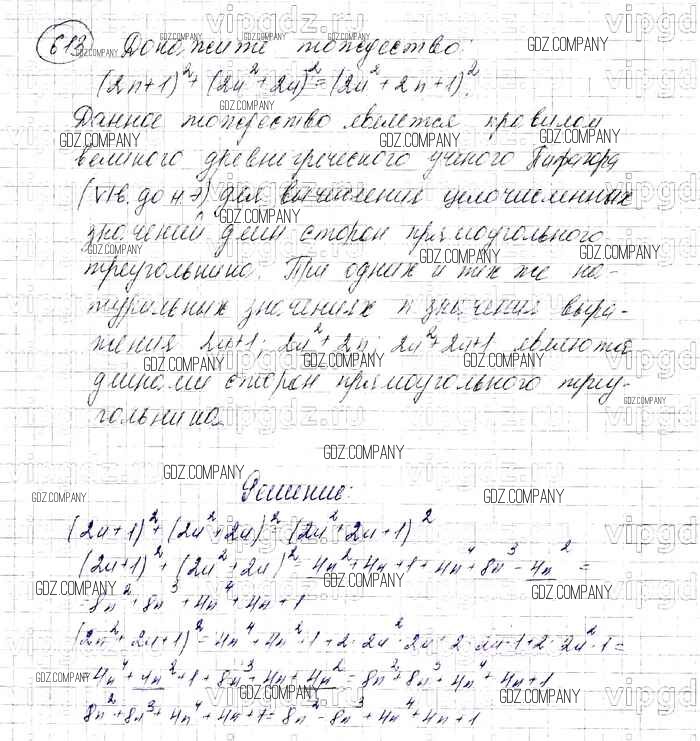 613 Докажите тождество:
(2n+1)² + (2n²+2n)² = (2n²+2n+1)².
Данное тождество является правилом
великого древнегреческого ученого Пифагора
(VI в. до н.э) для вычисления целочисленных
значений длин сторон прямоугольного
треугольника. При одних и тех же на-
туральных значениях n значения выра-
жения 2n+1; 2n²+2n; 2n²+2n+1 являются
длинами сторон прямоугольного треу-
гольника.
Решение:
(2n+1)²+(2n²+2n)² (2n²+2n+1)²
(2n+1)²+(2n²+2n)²=4n²+4n+1+4n⁴+8n³-4n²=
=8n²+8n³+4n⁴+4n+1
(2n²+2n+1)²=4n⁴+4n²+1+2·2n²·2n+2·2n·1+2·2n²·1=
=4n⁴+4n²+1+8n³+4n+4n²=8n²+8n³+4n⁴+4n+1
8n²+8n³+4n⁴+4n+1=8n²-8n³+4n⁴+4n+1
GDZ.COMPANY
vipgdz.ru